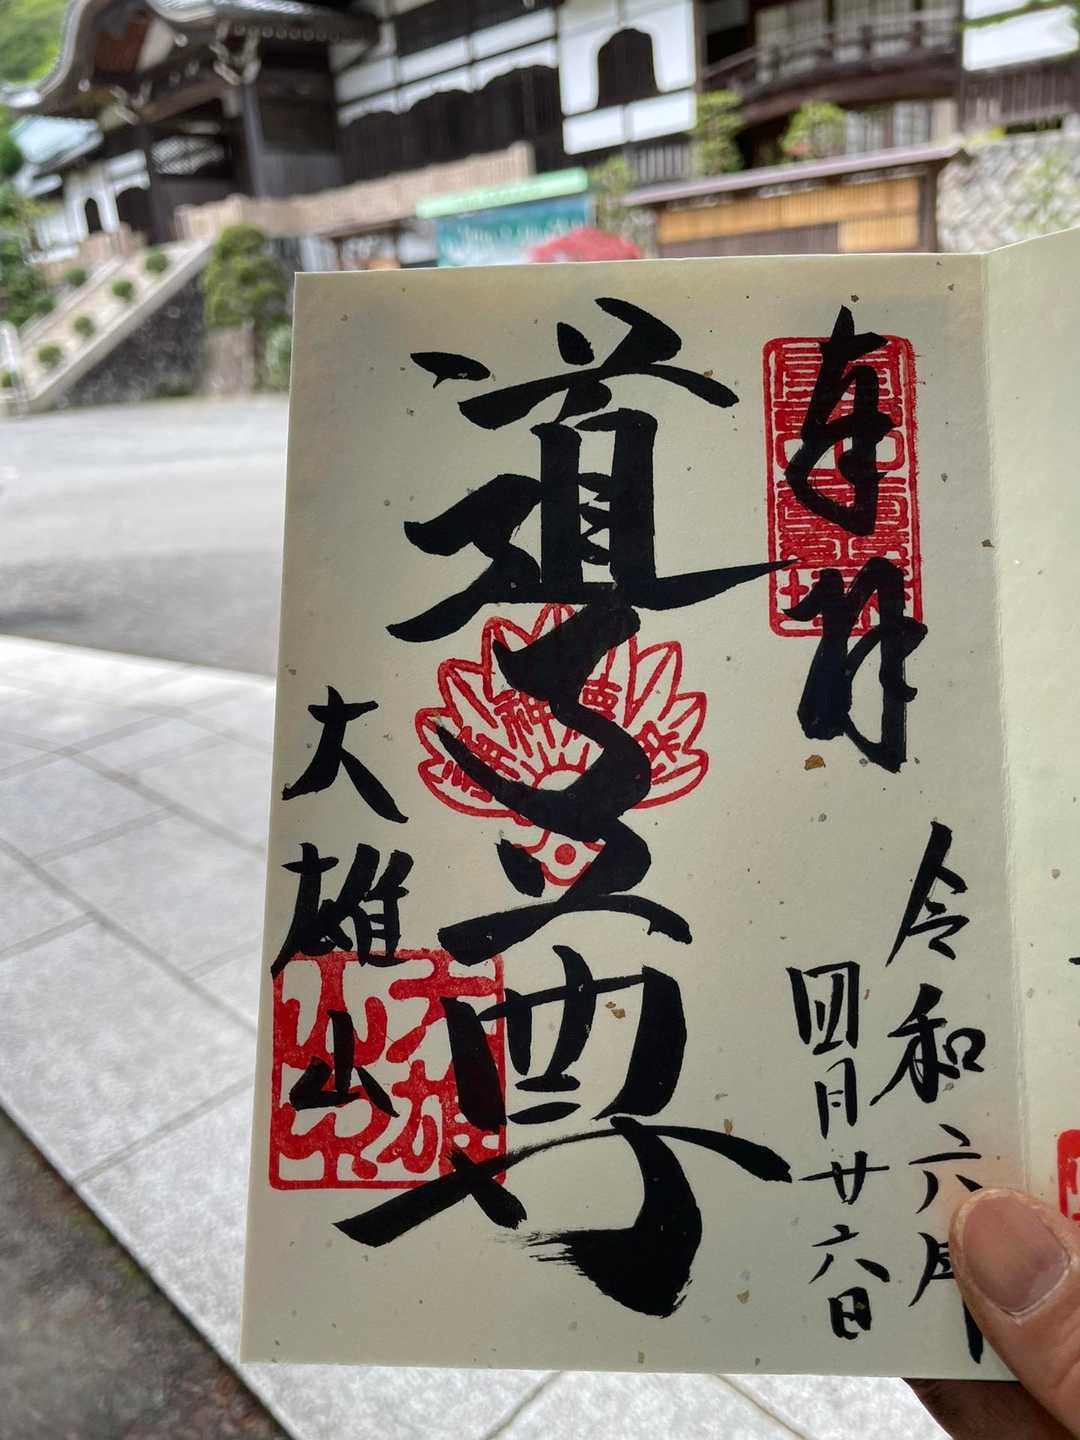 奉拝
令和六年
四月廿六日
道了尊
大雄山